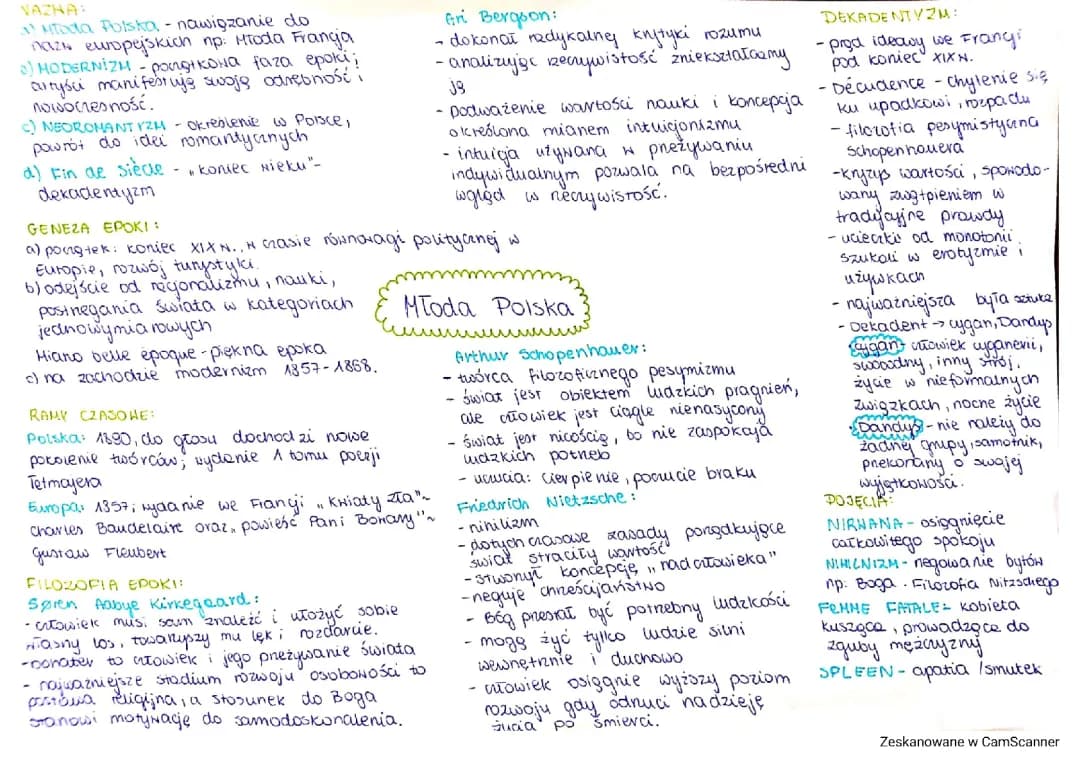 NAZWA:
a) Młoda Polska - nawiązanie do
nazw europejskich np: Młoda Francja
b) MODERNIZM - początkowa faza epoki;
artyści manifestują swoją odrębność i
nowoczesność.
c) NEOROMANTYZM - określenie w Polsce,
powrót do idei romantycznych
d) Fin de Siècle - "koniec wieku"-
dekadentyzm
GENEZA EPOKI:
a) początek: koniec XIX w., w czasie równowagi politycznej w
Europie, rozwój turystyki.
b) odejście od racjonalizmu, nauki,
postrzegania świata w kategoriach
jednowymiarowych
Miano belle époque - piękna epoka
c) na zachodzie modernizm 1857-1868.
RAMY CZASOWE:
Polska: 1890, do głosu dochodzi nowe
pokolenie twórców; wydanie 1 tomu poezji
Tetmajera
Europa: 1857; wydanie we Francji "Kwiaty zła"~
Charles Baudelaire oraz "powieść Pani Bovary"~
Gustaw Fleubert
FILOZOFIA EPOKI:
Søren Aabye Kirkegaard:
- człowiek musi sam znaleźć i ułożyć sobie
własny los, towarzyszy mu lęk i rozdarcie.
- bohater to człowiek i jego przeżywanie świata
- najważniejsze stadium rozwoju osobowości to
postawa religijna, a stosunek do Boga
stanowi motywację do samodoskonalenia.
Ari Bergson:
- dokonał radykalnej krytyki rozumu
- analizując rzeczywistość zniekształcamy
ją
- podważenie wartości nauki i koncepcja
określona mianem intuicjonizmu
- intuicja używana w przeżywaniu
indywidualnym pozwala na bezpośredni
wgląd w rzeczywistość.
Młoda Polska
Arthur Schopenhauer:
- twórca filozoficznego pesymizmu
- świat jest obiektem ludzkich pragnień,
ale człowiek jest ciągle nienasycony
- świat jest nicością, bo nie zaspokaja
ludzkich potrzeb
- uczucia: cierpienie, poczucie braku
Friedrich Nietzsche:
- nihilizm
- dotychczasowe zasady porządkujące
świat straciły wartość
- stworzył koncepcję "nadczłowieka"
- neguje chrześcijaństwo
- Bóg przestał być potrzebny ludzkości
- mogą żyć tylko ludzie silni
wewnętrznie i duchowo
- człowiek osiągnie wyższy poziom
rozwoju gdy odrzuci nadzieję
życia po śmierci.
DEKADENTYZM:
- prąd ideowy we Francji
pod koniec XIX w.
- Décadence - chylenie się
ku upadkowi, rozpadu
- filozofia pesymistyczna
Schopenhauera
- kryzys wartości, spowodo-
wany zwątpieniem w
tradycyjne prawdy
- ucieczki od monotonii
szukali w erotyzmie i
używkach
- najważniejsza była sztuka
- Dekadent → cygan, Dandys
• Cygan - człowiek cyganerii,
swobodny, inny strój,
życie w nieformalnych
związkach, nocne życie
• Dandys - nie należy do
żadnej grupy, samotnik,
przekonany o swojej
wyjątkowości.
POJĘCIA:
NIRWANA - osiągnięcie
całkowitego spokoju
NIHILNIZM - negowanie bytów
np: Boga. Filozofia Nitzschego
FEMME FATALE - kobieta
kusząca, prowadząca do
zguby mężczyzny
SPLEEN - apatia / smutek
Zeskanowane w CamScanner